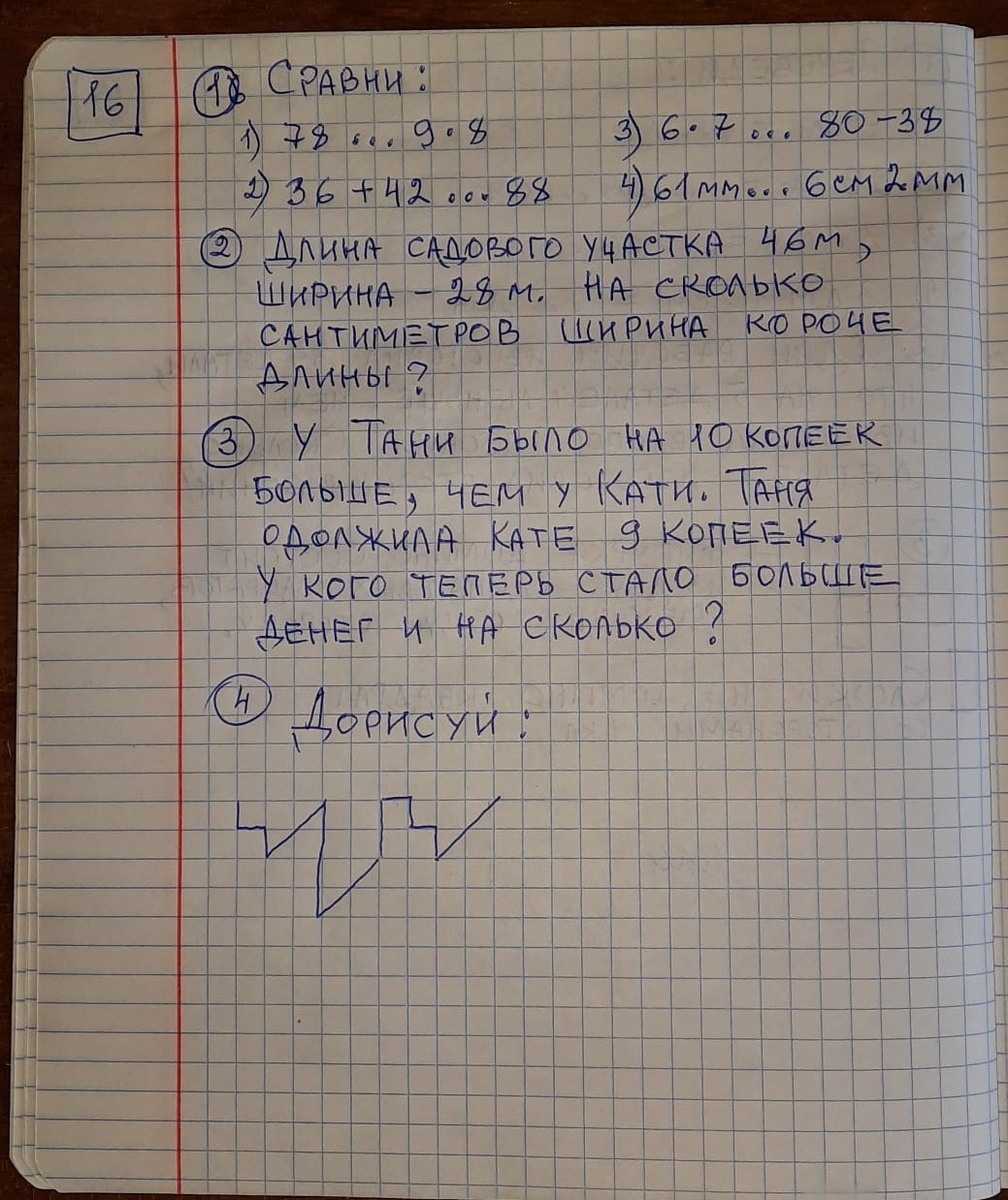 16
① Сравни:
1) 78 ... 9·8 3) 6·7 ... 80-38
2) 36+42 ... 88 4) 61мм... 6см 2мм
② Длина садового участка 46м,
ширина - 28м. На сколько
сантиметров ширина короче
длины?
③ У Тани было на 10 копеек
больше, чем у Кати. Таня
одолжила Кате 9 копеек.
У кого теперь стало больше
денег и на сколько?
④ Дорисуй: